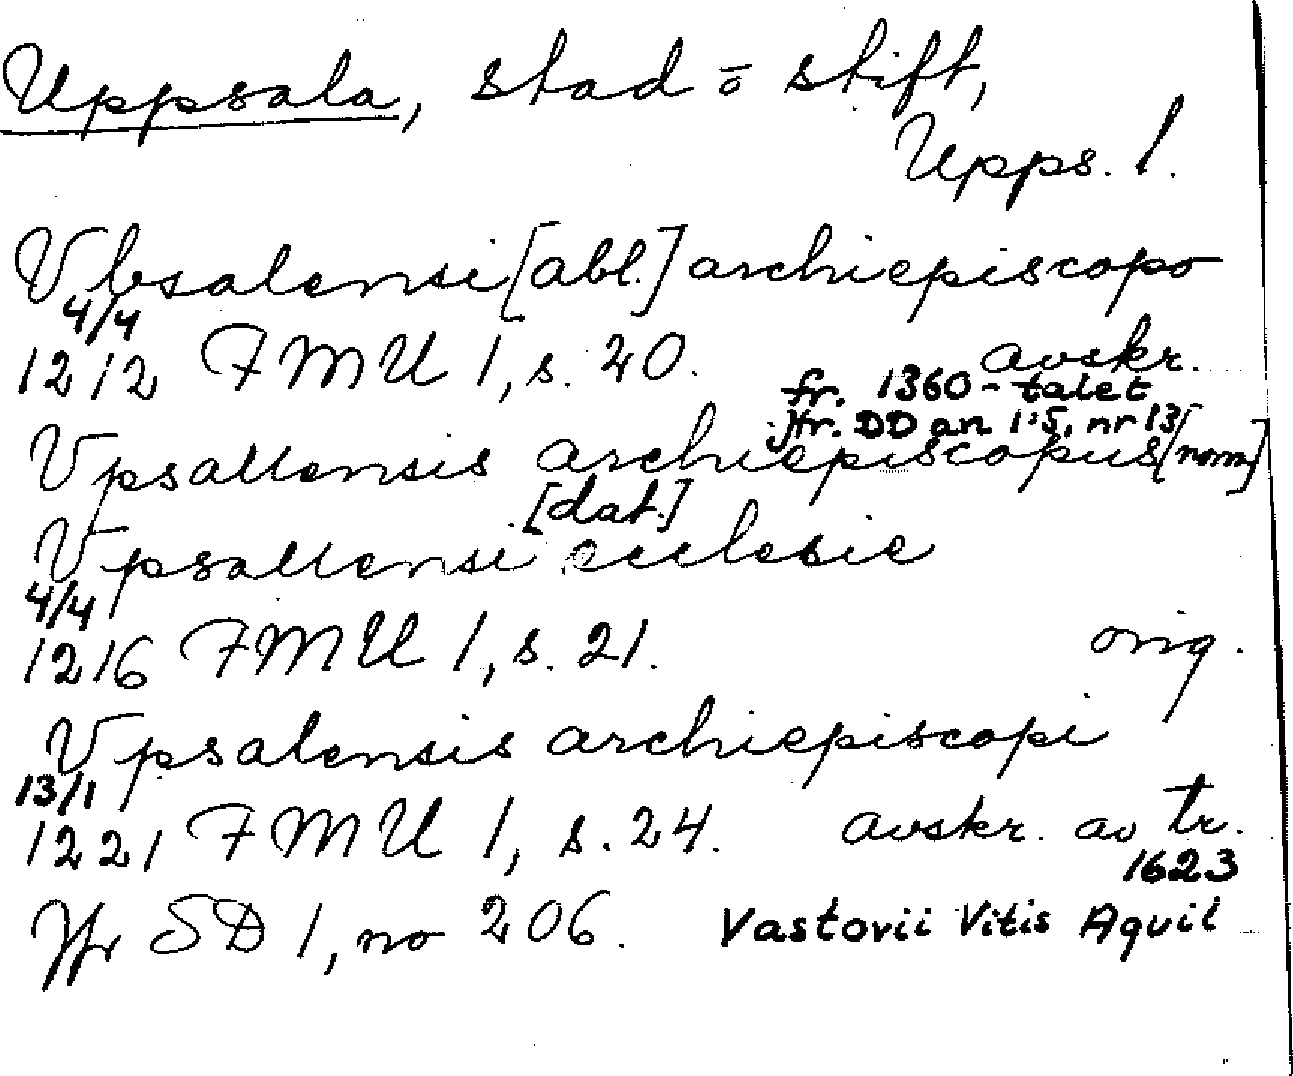 Uppsala, stad o stift,
Upps. l.
Vbsalensi [abl.] archiepiscopo
4/4
1212 FMU 1, s. 20. avskr.
fr. 1360-talet
jfr. DD an 1:5, nr 13
Vpsallensis archiepiscopus [nom]
[dat.]
Vpsallensi ecclesie
4/4
1216 FMU 1, s. 21. orig.
Vpsalensis archiepiscopi
13/1
1221 FMU 1, s. 24. avskr. av tr.
1623
Jfr SD 1, no 206. Vastovii Vitis Aquil